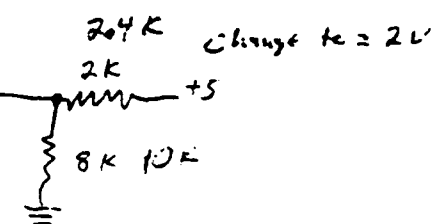 2.4 K
Change to = 2 V
2K
+5
8K 10K